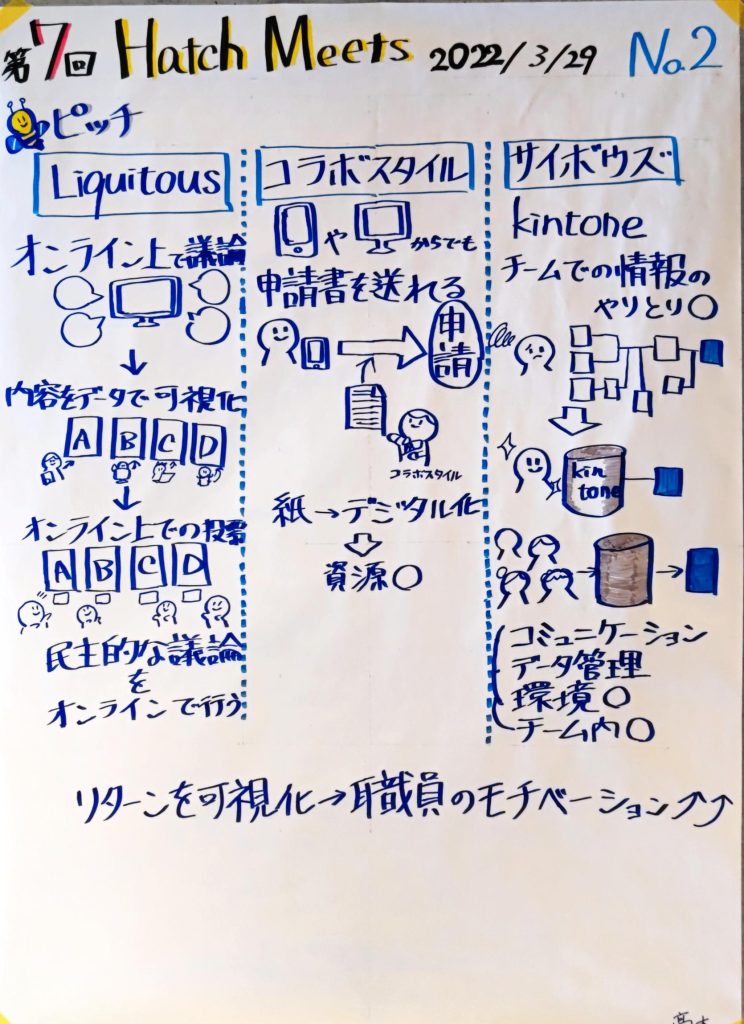 第7回 Hatch Meets 2022/3/29 No.2
ピッチ
Liquitous
オンライン上で議論
↓
内容をデータで可視化
A B C D
↓
オンライン上での投票
A B C D
民主的な議論
を
オンラインで行う
コラボスタイル
や からでも
申請書を送れる
申請
コラボスタイル
紙→デジタル化
資源○
サイボウズ
kintone
チームでの情報の
やりとり○
kin
tone
コミュニケーション
データ管理
環境○
チーム内○
リターンを可視化→職員のモチベーション↑↑